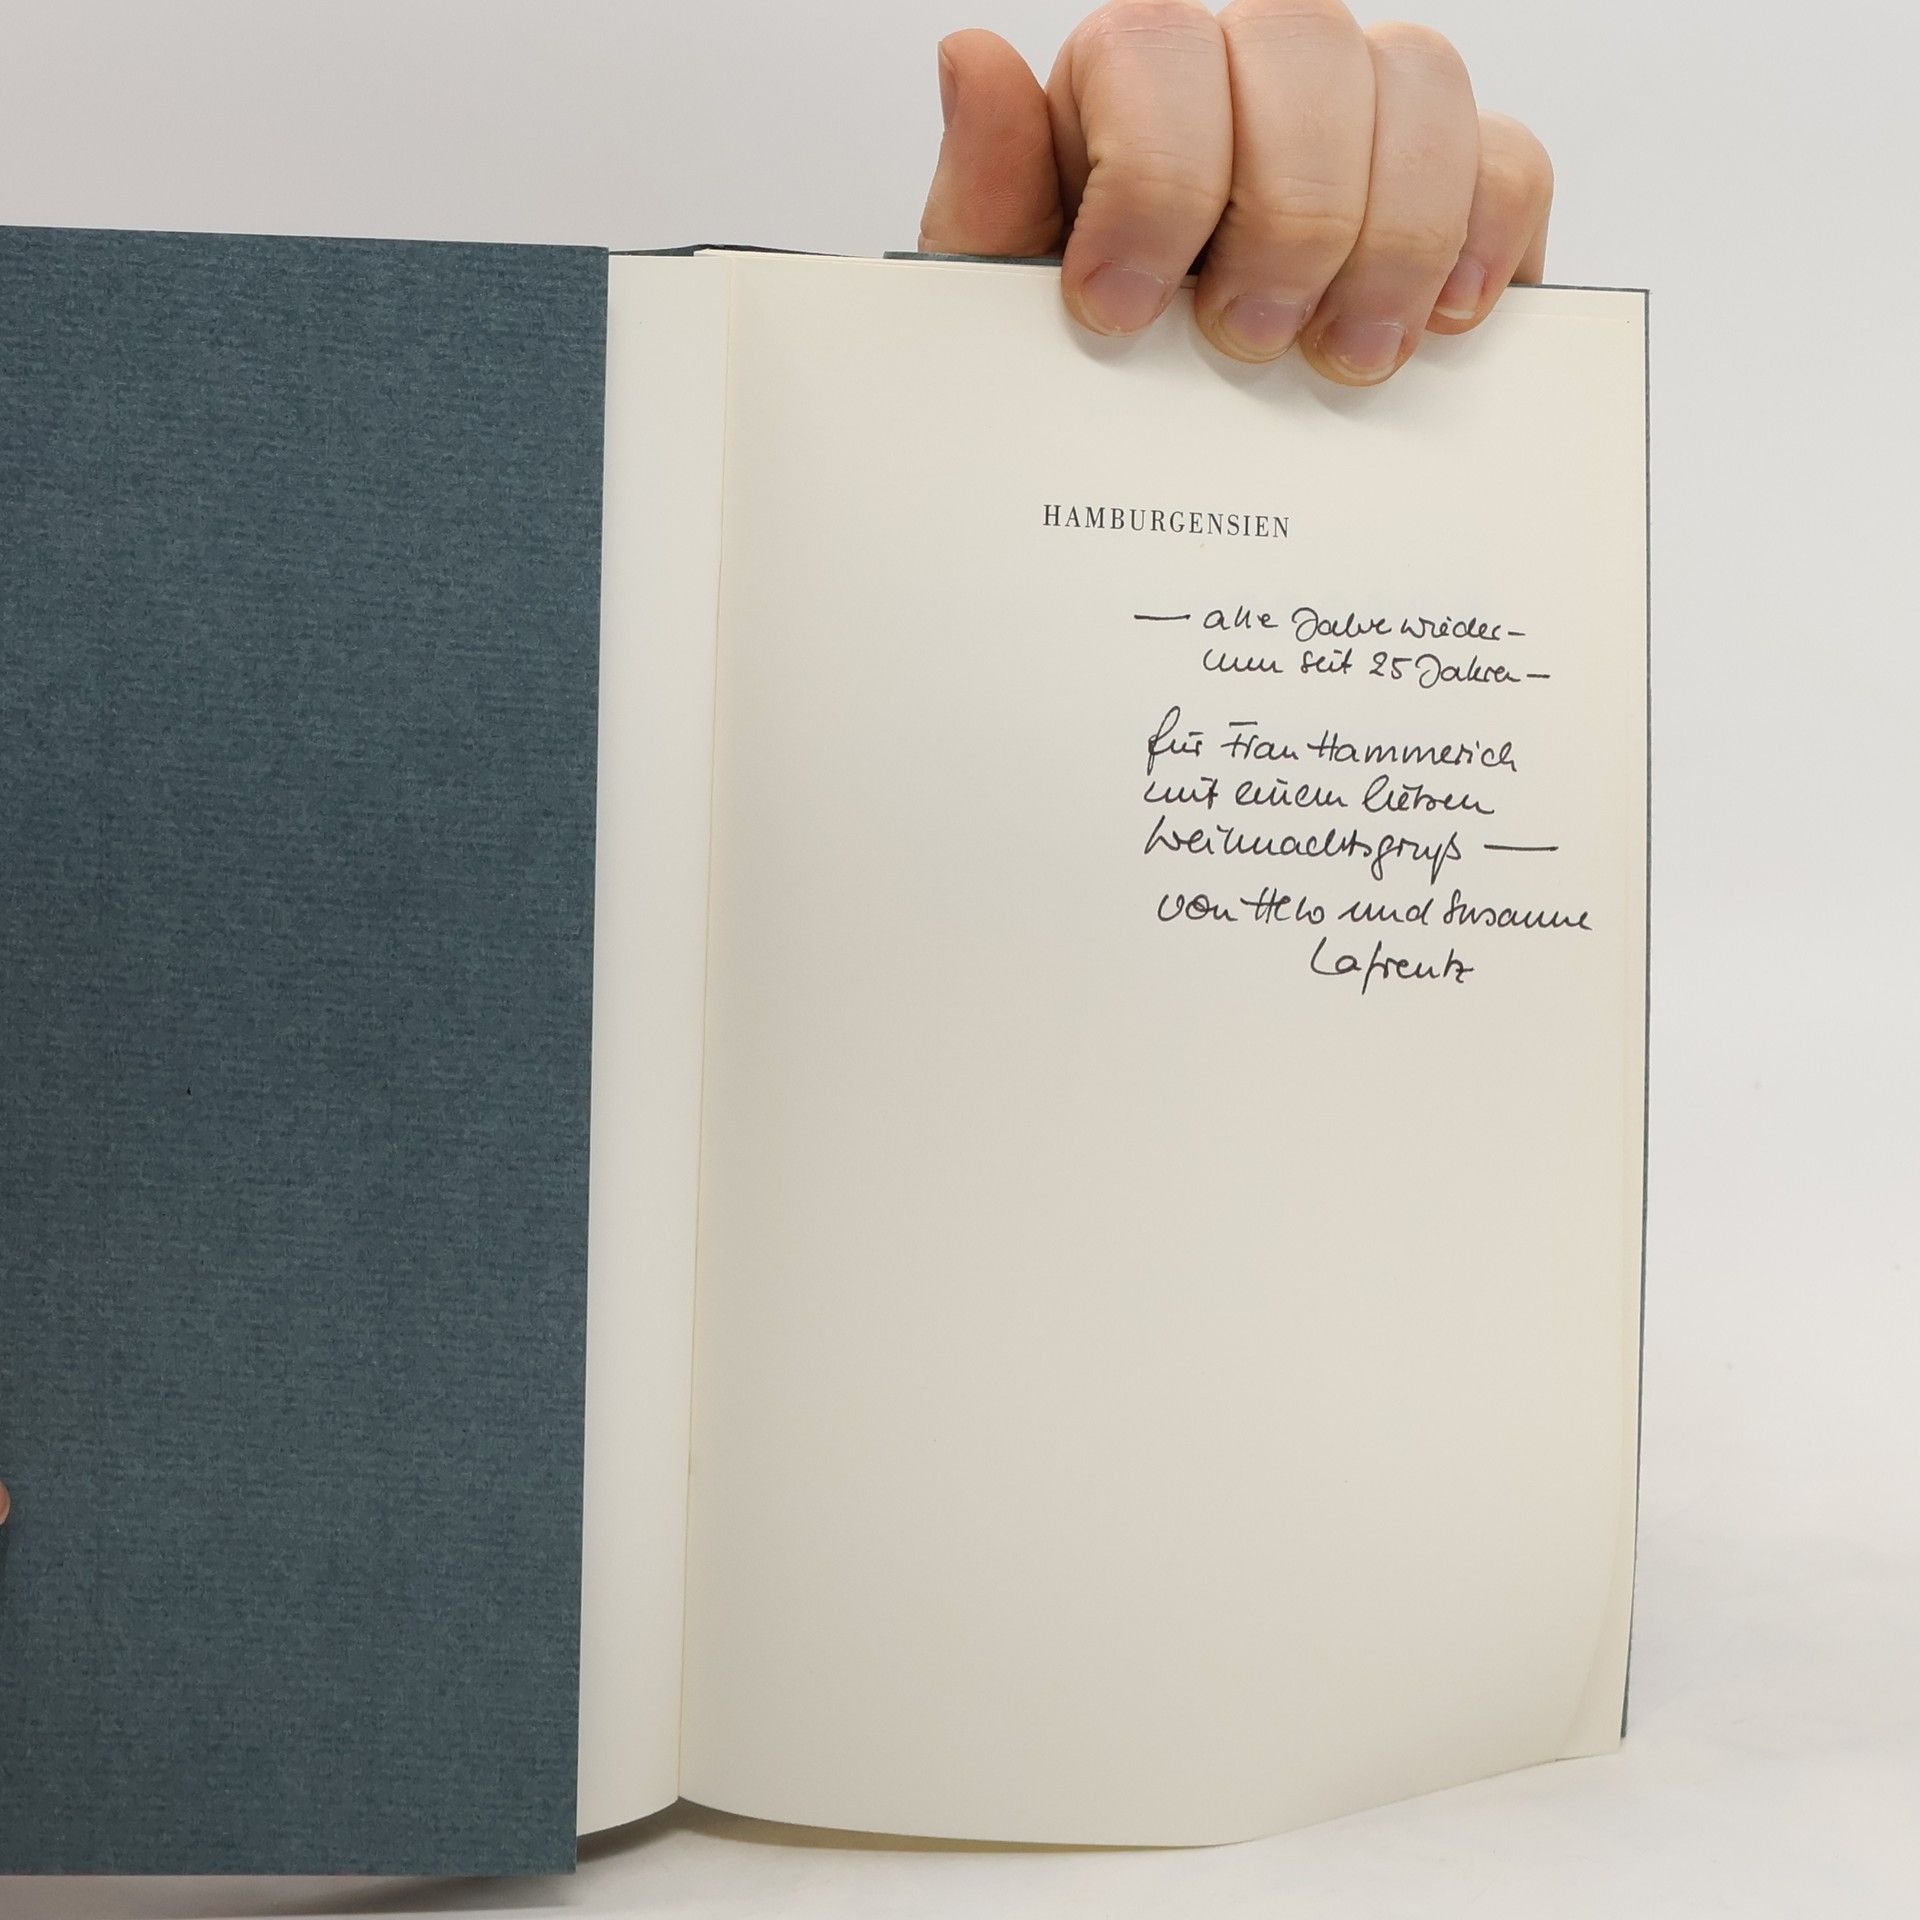 HAMBURGENSIEN
— alle Jahre wieder –
nun seit 25 Jahren –
für Frau Hammerich
mit einem lieben
Weihnachtsgruß —
von und Susanne
Lafrentz